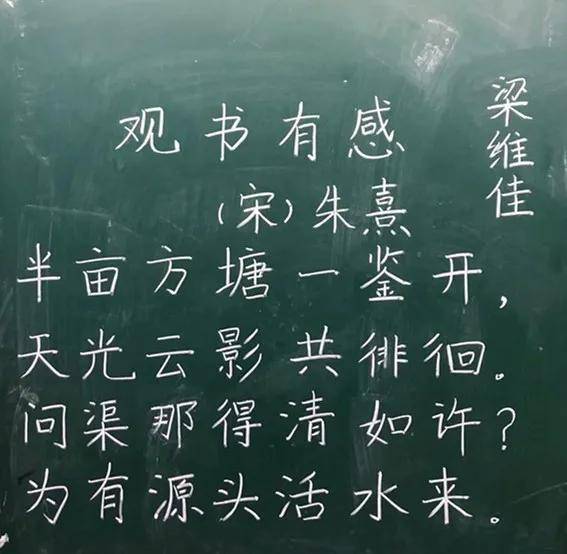 观书有感
（宋）朱熹
半亩方塘一鉴开，
天光云影共徘徊。
问渠那得清如许？
为有源头活水来。
梁维佳